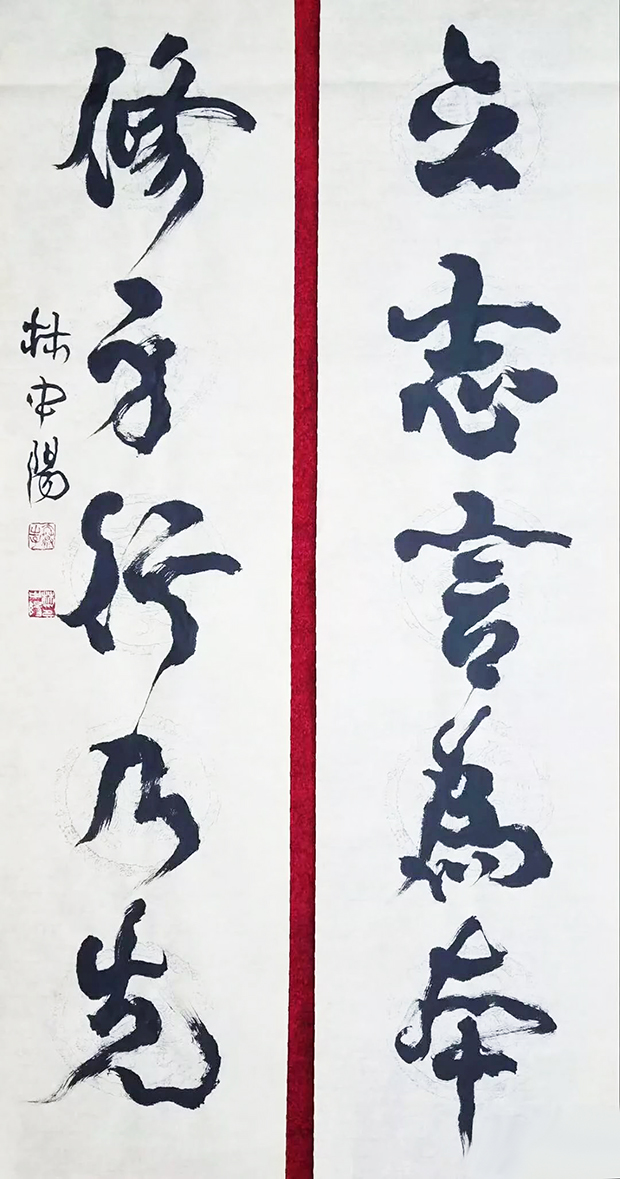 立志言為本
修身行乃先
林中陽